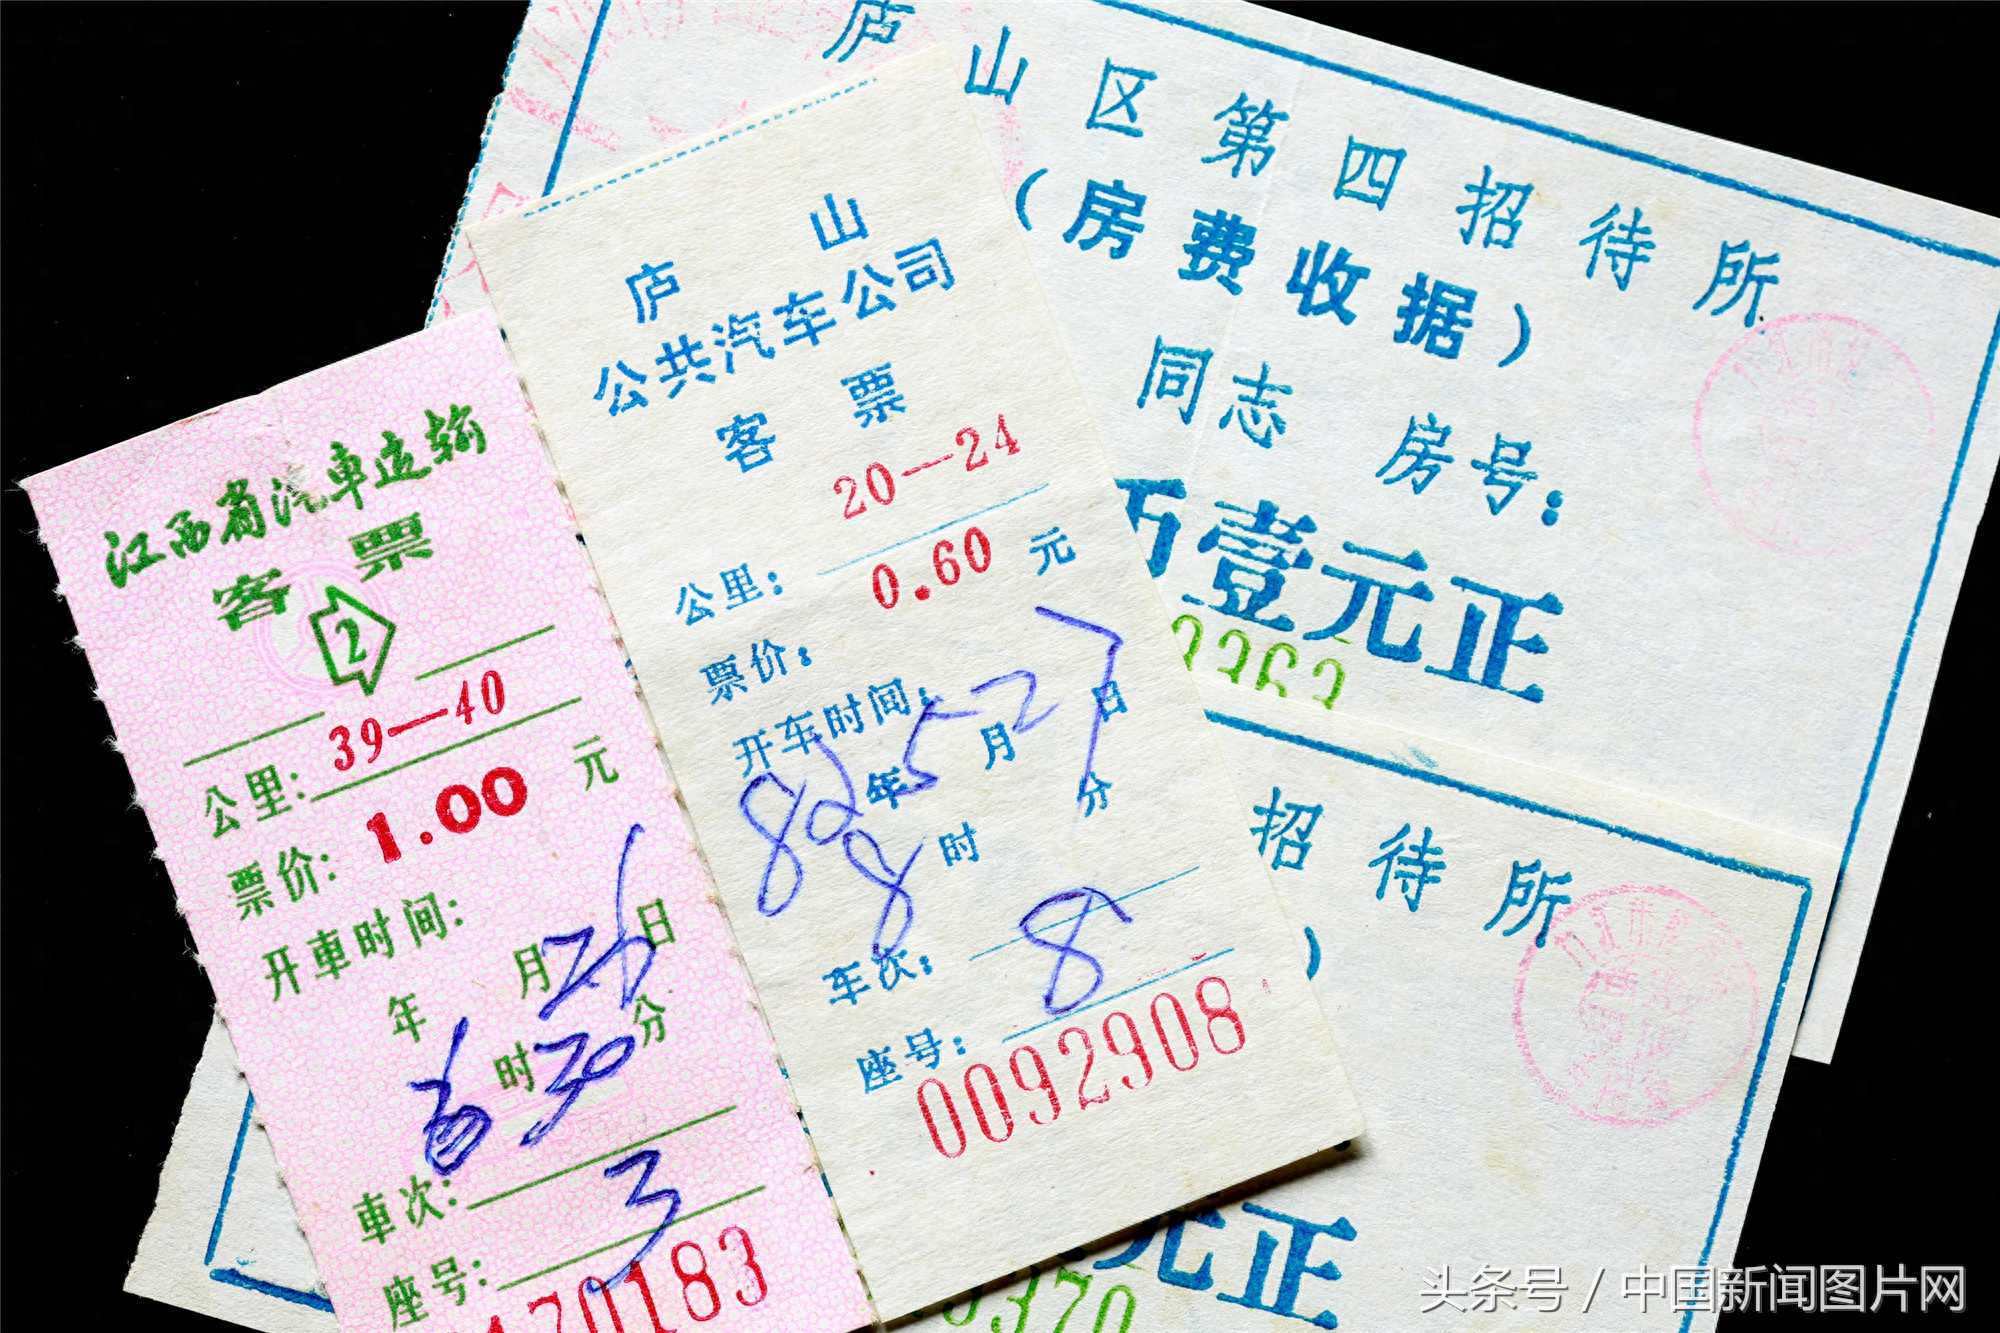 庐山区第四招待所
（房费收据）
同志 房号：
壹元正
招待所
）
元正
庐山
公共汽车公司
客票
20—24
公里：
0.60 元
票价：
开车时间：
82年5月27日
8时 分
车次：
8
座号：
0092908
江西省汽車运输
客票
2
39—40
公里：
1.00 元
票价：
开車时间：
年 月26日
时30分
車次：
3
座号：
70183
头条号 / 中国新闻图片网